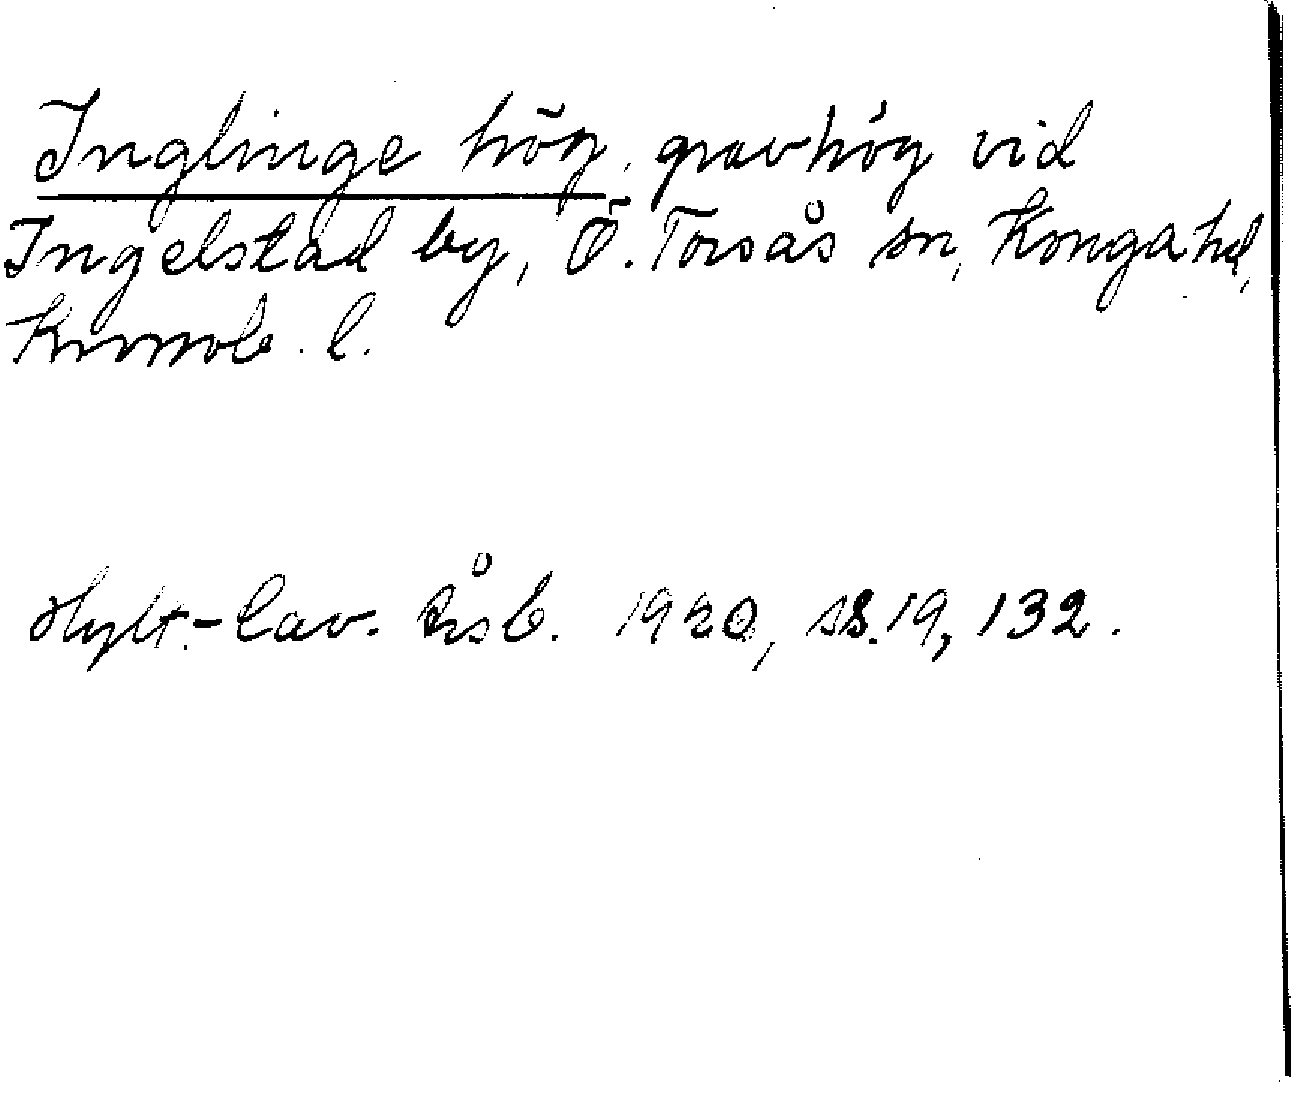 Inglinge hög, gravhög vid
Ingelstad by, Ö. Torsås sn, Konga hd,
Kronob. l.
Hylt.-Cav. Årsb. 1920, ss. 19, 132.